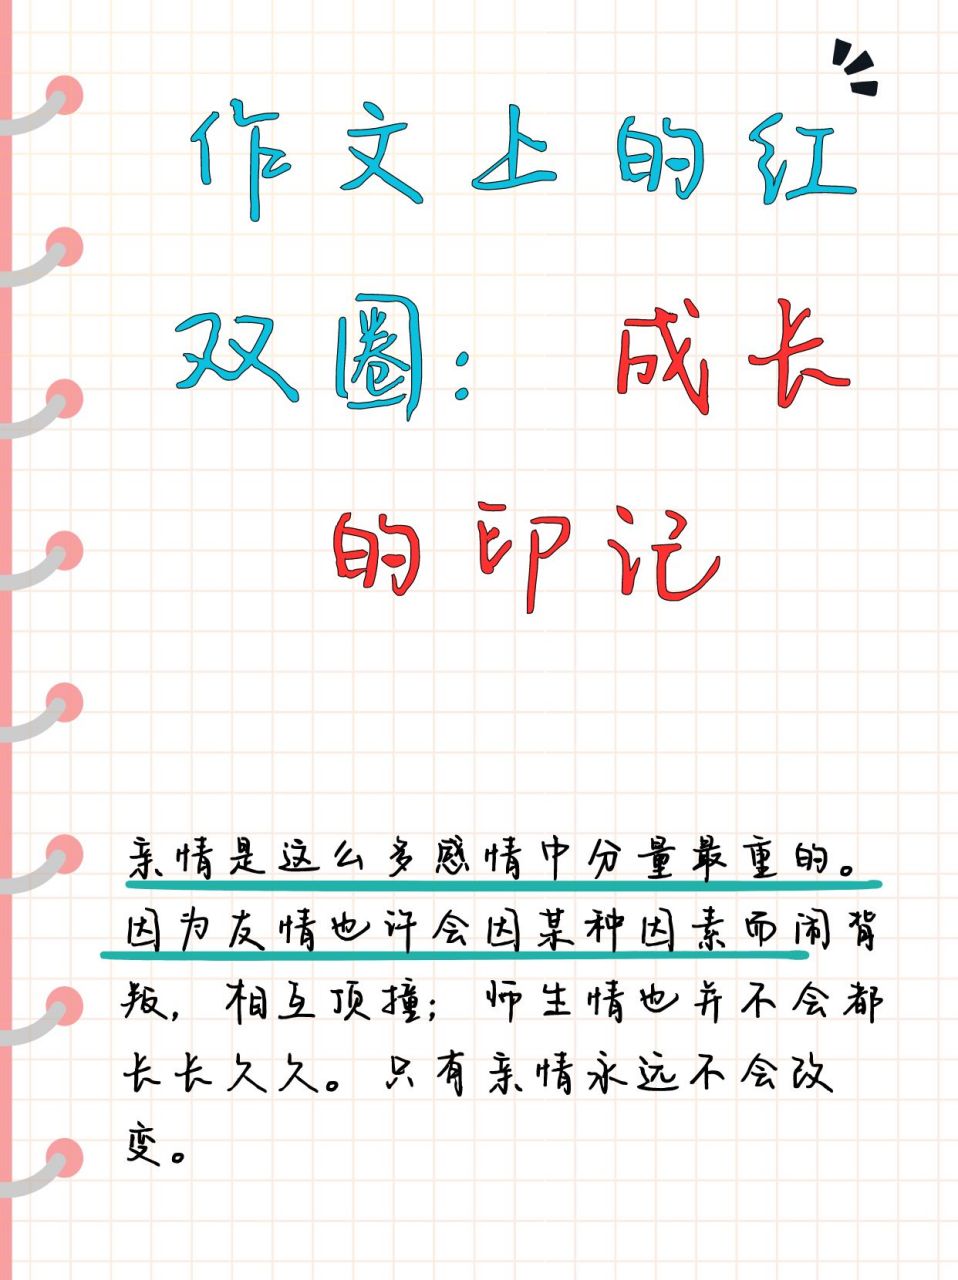 作文上的红
双圈：成长
的印记
亲情是这么多感情中分量最重的。
因为友情也许会因某种因素而闹背
叛，相互顶撞；师生情也并不会都
长长久久。只有亲情永远不会改
变。